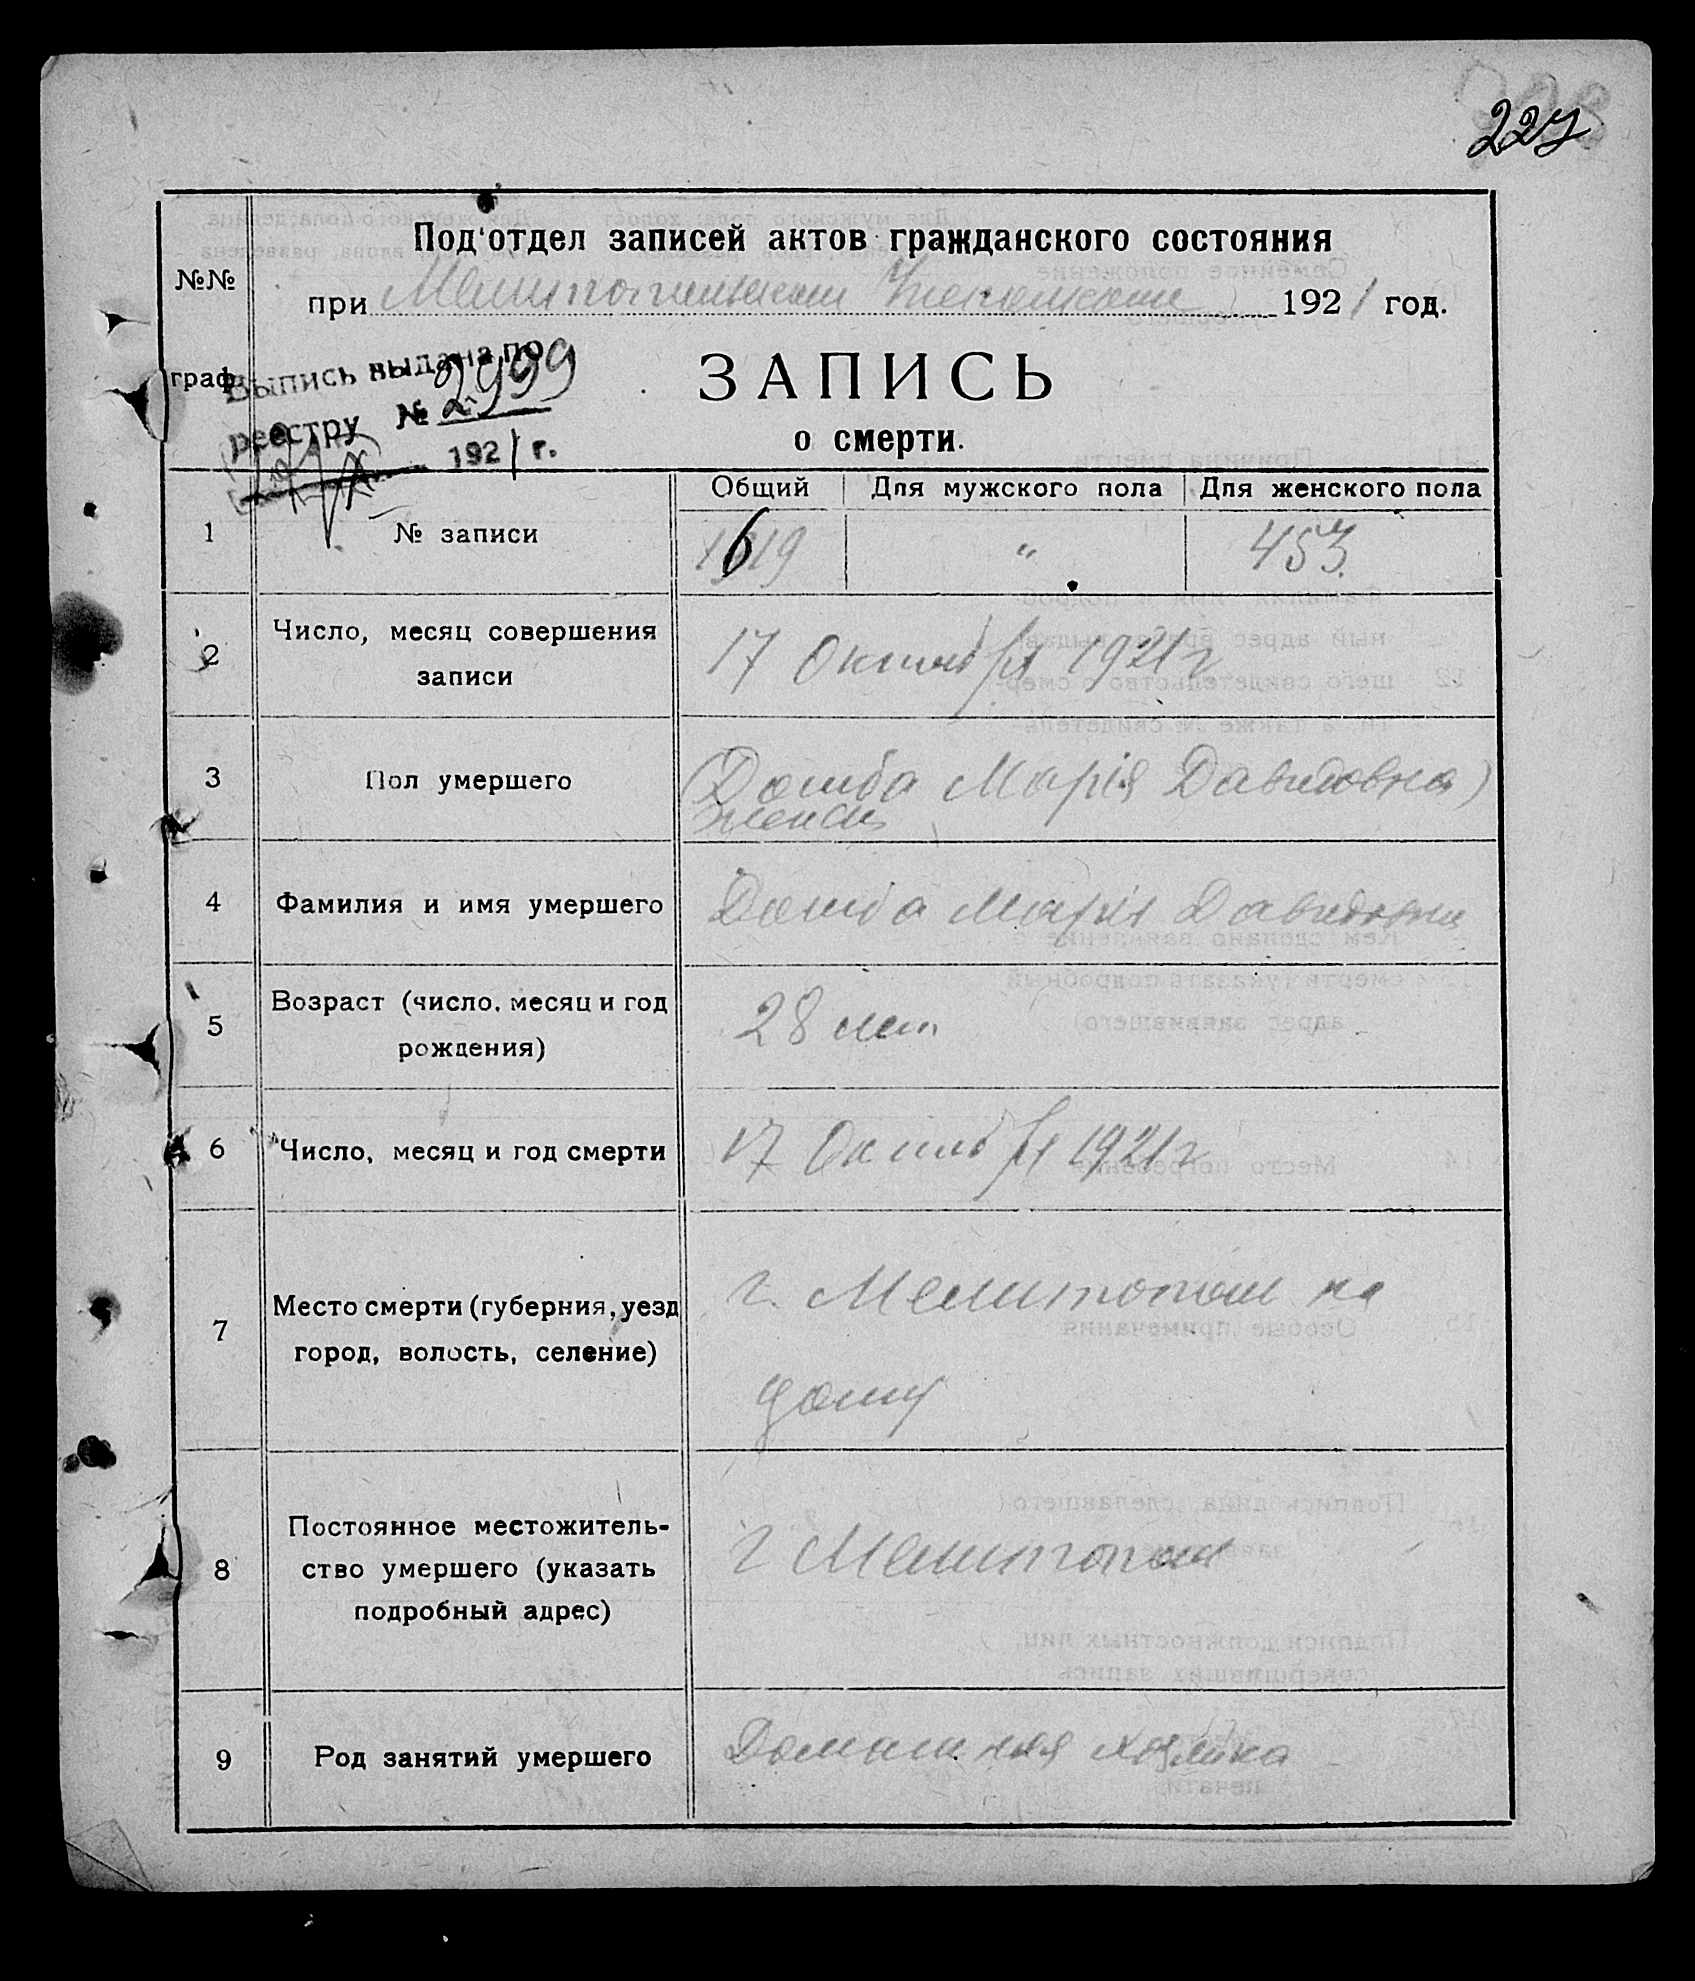 227
Под'отдел записей актов гражданского состояния
№№
при Мелитопольском 1921 год.
граф.
Выпись выдана по
реестру № 2999
1921 г.
ЗАПИСЬ
о смерти.
Общий Для мужского пола Для женского пола
1 № записи 1619 " 453
2 Число, месяц совершения
записи
17 Октября 1921 г
3 Пол умершего
Марія Давидовна)
женск
4 Фамилия и имя умершего Марія Давидовна
5 Возраст (число, месяц и год
рождения)
28 лет
6 Число, месяц и год смерти 17 Октября 1921 г
7 Место смерти (губерния, уезд
город, волость, селение)
г. Мелитополь на
дому
8 Постоянное местожитель-
ство умершего (указать
подробный адрес)
г Мелитополь
9 Род занятий умершего Домашняя хозяйка